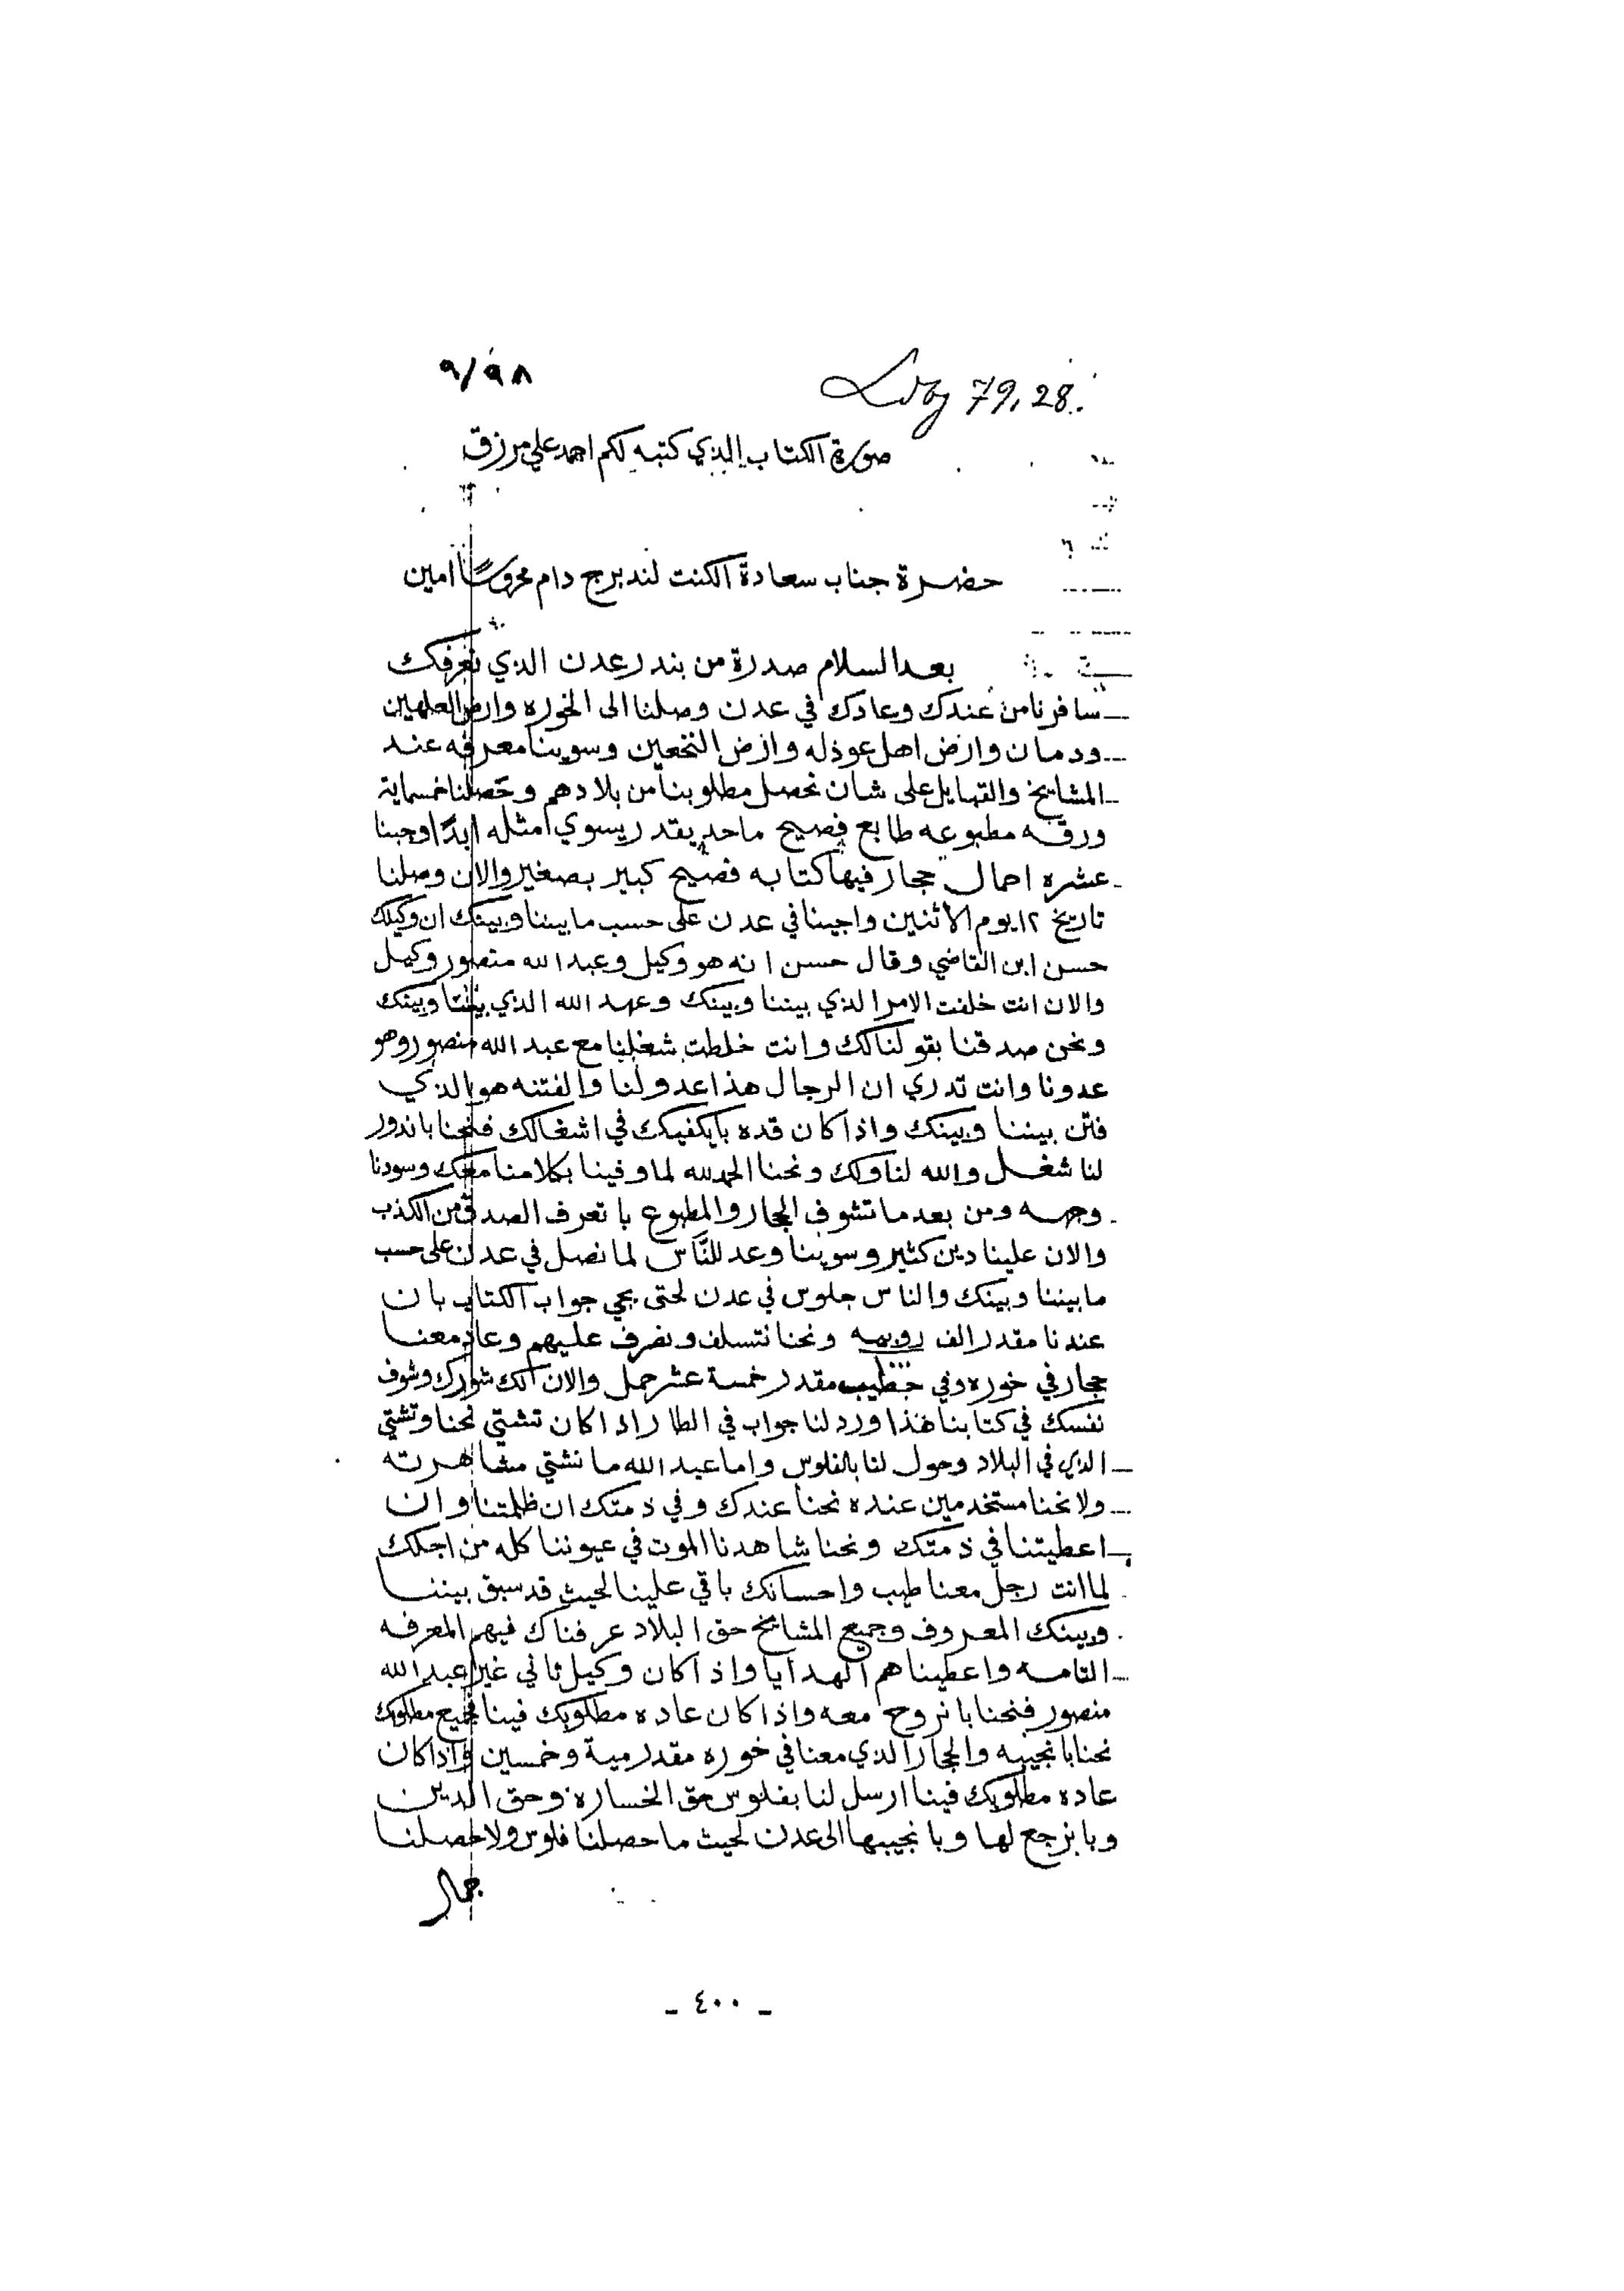 ٩/٩٨
Ldbg 79, 28.
صورة الكتاب الذي كتبه لكم احمد علي مرزق
حضرة جناب سعادة الكنت لندبرج دام محروسًا امين
بعد السلام صدرة من بندر عدن الذي نعرفك
سافرنا من عندك وعادك في عدن وصلنا الى الخوره وارض العلهيين
ودمان وارض اهل عوذله وارض النخعين وسوينا معرفه عند
المشايخ والقبايل على شان نحصل مطلوبنا من بلادهم وحصلنا خمسماية
ورقه مطبوعه طابع فصيح ماحد يقدر يسوي امثله ابدًا وجبنا
عشره احمال حجار فيها كتابه فصيح كبير بصغير والان وصلنا
تاريخ ١٢ يوم الاثنين واجينا في عدن على حسب ما بيننا وبينك ان وكيلك
حسن ابن القاضي وقال حسن انه هو وكيل وعبد الله منصور وكيل
والان انت خلفت الامر الذي بيننا وبينك وعهد الله الذي بيننا وبينك
ونحن صدقنا بقولنا لك وانت خلطت شغلنا مع عبد الله منصور وهو
عدونا وانت تدري ان الرجال هذا عدو لنا والفتنه هو الذي
فتن بيننا وبينك واذا كان قده بايكفيك في اشغالك فنحنا باندور
لنا شغل والله لنا ولك ونحنا الحمد لله لما وفينا بكلامنا معك وسودنا
وجهه ومن بعد ما تشوف الحجار والمطبوع با تعرف الصدق من الكذب
والان علينا دين كثير وسوينا وعد للنّاس لما نصل في عدن على حسب
ما بيننا وبينك والناس جلوس في عدن لحتى يجي جواب الكتاب بان
عندنا مقدر الف روبيه ونحنا نتسلف ونصرف عليهم وعاد معنا
حجار في خوره وفي مقدر خمسة عشر حمل والان لك شورك وشوف
نفسك في كتابنا هذا ورد لنا جواب في الطار اذا كان تشتي نحنا وتشتي
الذي في البلاد وحول لنا بالفلوس واما عبد الله ما نشتي مشاهرته
ولا نحنا مستخدمين عنده نحنا عندك وفي ذمتك ان ظلمتنا وان
اعطيتنا في ذمتك ونحنا شاهدنا الموت في عيوننا كله من اجلك
لما انت رجل معنا طيب واحسانك باقي علينا لحيث قد سبق بيننا
وبينك المعروف وجميع المشايخ حق البلاد عرفناك فيهم المعرفه
التامه واعطيناهم الهدايا واذا كان وكيل ثاني غير عبد الله
منصور فنحنا با نروح معه واذا كان عاده مطلوبك فينا فجميع مطلوبك
نحنا با نجيبه والحجار الذي معنا في خوره مقدر مية وخمسين واذا كان
عاده مطلوبك فينا ارسل لنا بفلوس حق الخساره وحق الدين
وبا نرجع لها وبا نجيبها الى عدن لحيث ما حصلنا فلوس ولا حصلنا
جمال
- ٤٠٠ -